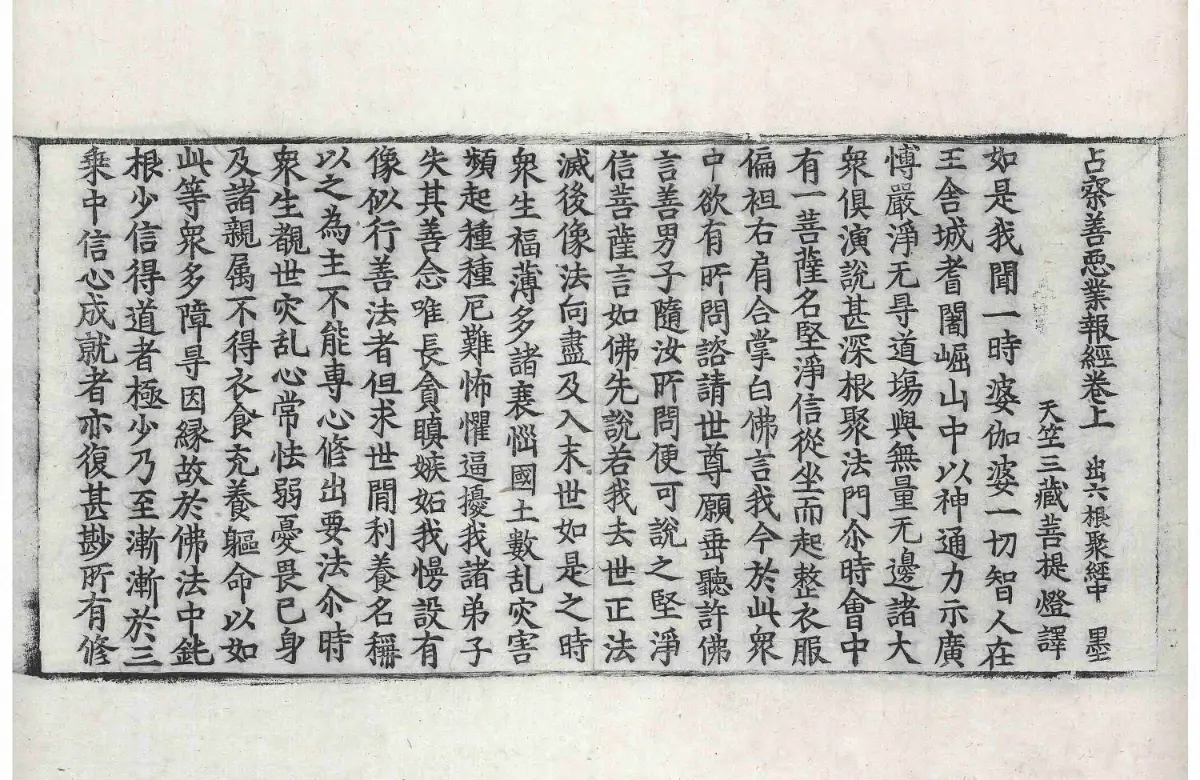 占察善惡業報經卷上 出六根聚經中 墨
天竺三藏菩提燈譯
如是我聞一時婆伽婆一切智人在
王舍城耆闍崛山中以神通力示廣
愽嚴淨无㝵道塲與無量无邊諸大
衆俱演說甚深根聚法門尒時會中
有一菩薩名堅淨信從坐而起整衣服
偏袒右肩合掌白佛言我今於此衆
中欲有所問諮請世尊願垂聽許佛
言善男子隨汝所問便可說之堅淨
信菩薩言如佛先說若我去世正法
滅後像法向盡及入末世如是之時
衆生福薄多諸衰惱國土數乱灾害
頻起種種厄難怖懼逼擾我諸弟子
失其善念唯長貪瞋嫉妬我慢設有
像似行善法者但求世閒利養名稱
以之為主不能專心修出要法尒時
衆生覩世灾乱心常怯弱憂畏已身
及諸親属不得衣食充養軀命以如
此等衆多障㝵因緣故於佛法中鈍
根少信得道者極少乃至漸漸於三
乘中信心成就者亦復甚尠所有修